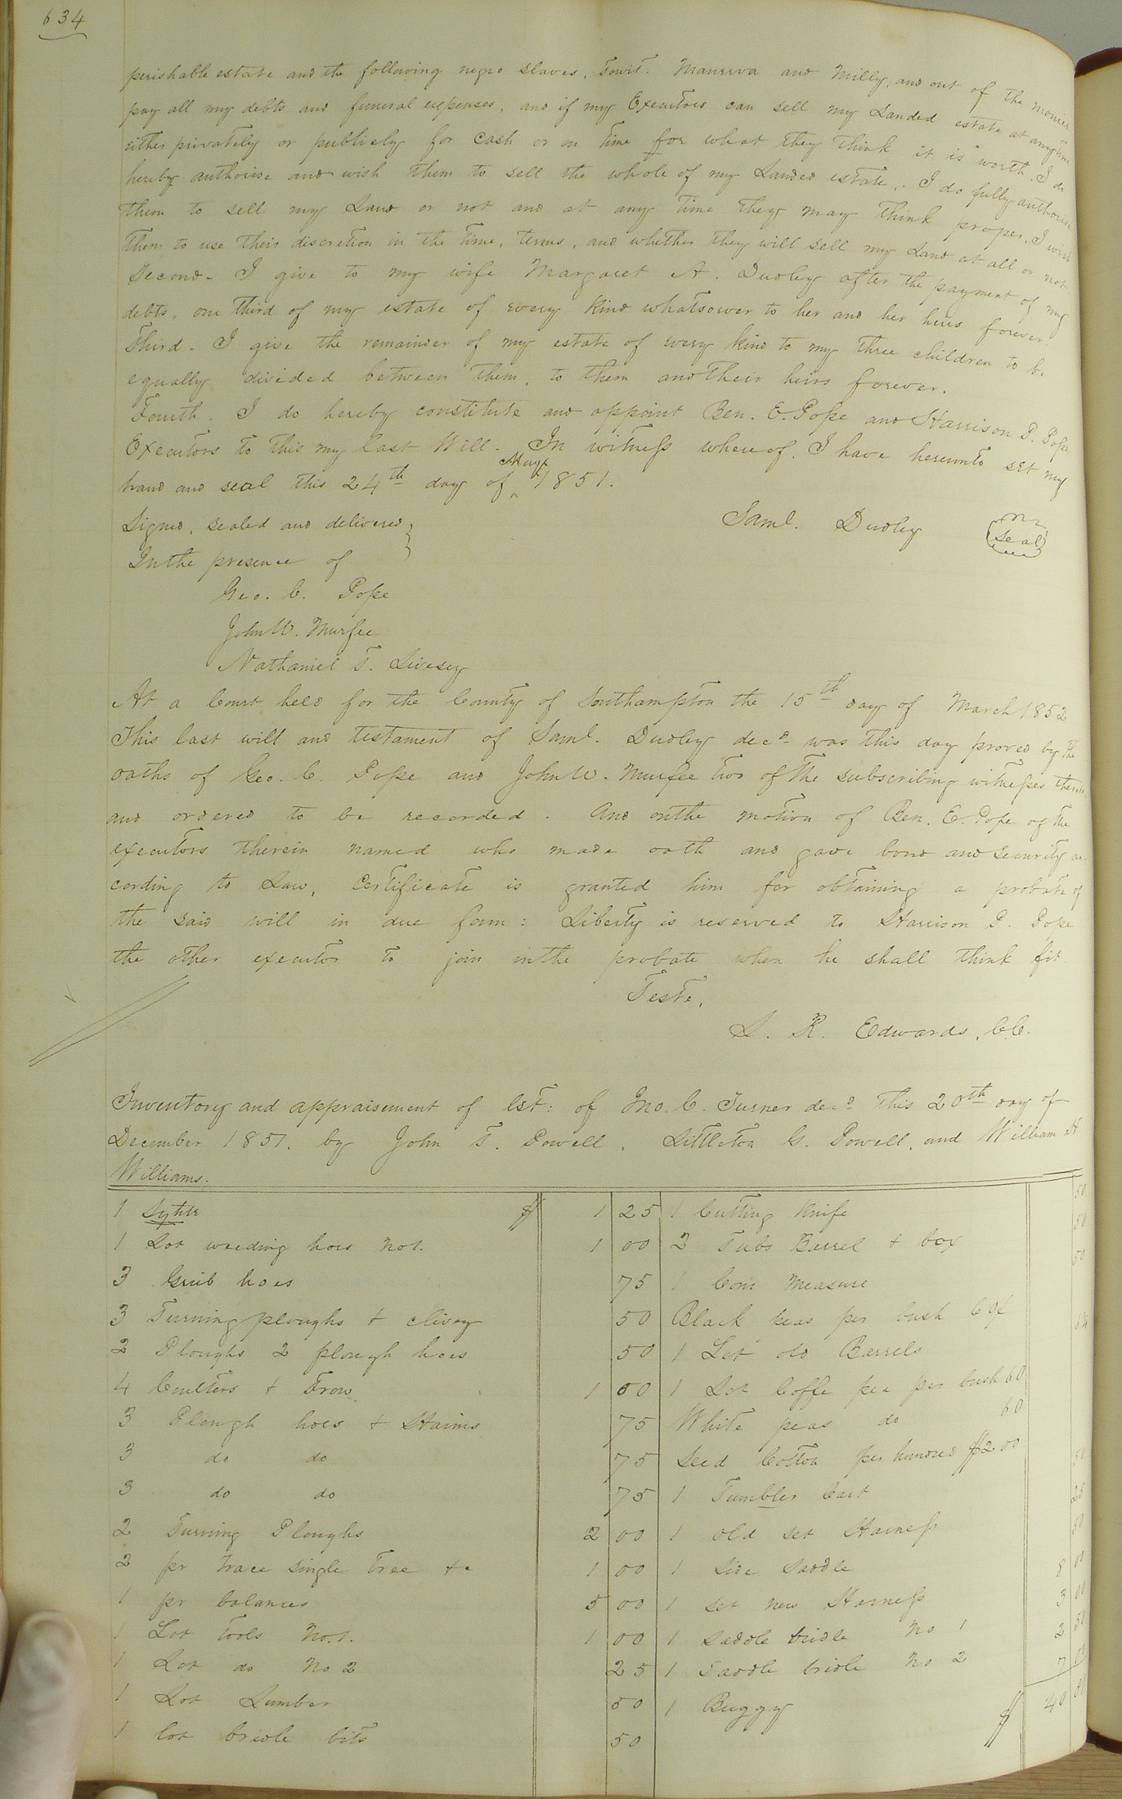 634
perishable estate and the following negro slaves, Towit. Manerva and Milly, and out of the monies
pay all my debts and funeral expenses, and if my Executors can sell my Landed estate at any time
either privately or publicly for Cash or on time for what they think it is worth, I do
hereby authorise and wish them to sell the whole of my Landed estate. I do fully authorise
them to sell my Land or not and at any time they may think proper. I wish
them to use their discretion in the time, terms, and whether they will sell my Land at all or not
Second- I give to my wife Margaret A. Dudley after the payment of my
debts, one third of my estate of every kind whatsoever to her and her heirs forever.
Third- I give the remainder of my estate of every kind to my three children to be
equally divided between them, to them and their heirs forever.
Fourth. I do hereby constitute and appoint Ben. E. Pope and Harrison P. Pope
Executors to this my last Will. In witness whereof, I have hereunto set my
hand and seal this 24th day of May 1851.
Signed, sealed and delivered
In the presence of
Saml. Dudley
Seal
Geo. C. Pope
John W. Murfee
Nathaniel T. Livesey
At a Court held for the County of Southampton the 15th day of March 1852
This last will and testament of Saml. Dudley decd. was this day proved by the
oaths of Geo. C. Pope and John W. Murfee two of the subscribing witnesses thereto
and ordered to be recorded. And on the motion of Ben. E. Pope of the
executors therein named who made oath and gave bond and security ac
cording to Law, Certificate is granted him for obtaining a probate of
the said will in due form: Liberty is reserved to Harrison P. Pope
the other executor to join in the probate when he shall think fit
Teste,
L. R. Edwards, C.C.
Inventory and appraisement of Est: of Jno. C. Turner decd. This 20th day of
December 1851. by John T. Powell, Littleton G. Powell, and William H
Williams.
1 Sythe $ 1 25
1 Lot weeding hoes No 1. 1 00
3 Grub hoes 75
3 Turning ploughs + clivey 50
2 Ploughs 2 plough hoes 50
4 Coulters + Frow 1 00
3 Plough hoes + Haims 75
3 do do 75
3 do do 75
2 Turning Ploughs 2 00
2 pr trace single tree +c 1 00
1 pr balances 5 00
1 Lot tools No. 1. 1 00
1 Lot do No 2 25
1 Lot Lumber 50
1 lot bridle bits 50
1 Cutting Knife 50
2 Tubs Barrel + box 50
1 Corn Measure 50
Black peas per bush 60¢
1 Lot old Barrels
1 Lot Coffe pea per bush 60
White peas do 60
Seed Cotton per hundred $2 00
1 Tumbler Cart
1 old set Harness
1 Side Saddle 8 00
1 set new Harness 3 00
1 Saddle bridle No 1 2 50
1 Saddle bridle No 2 7
1 Buggy $ 40